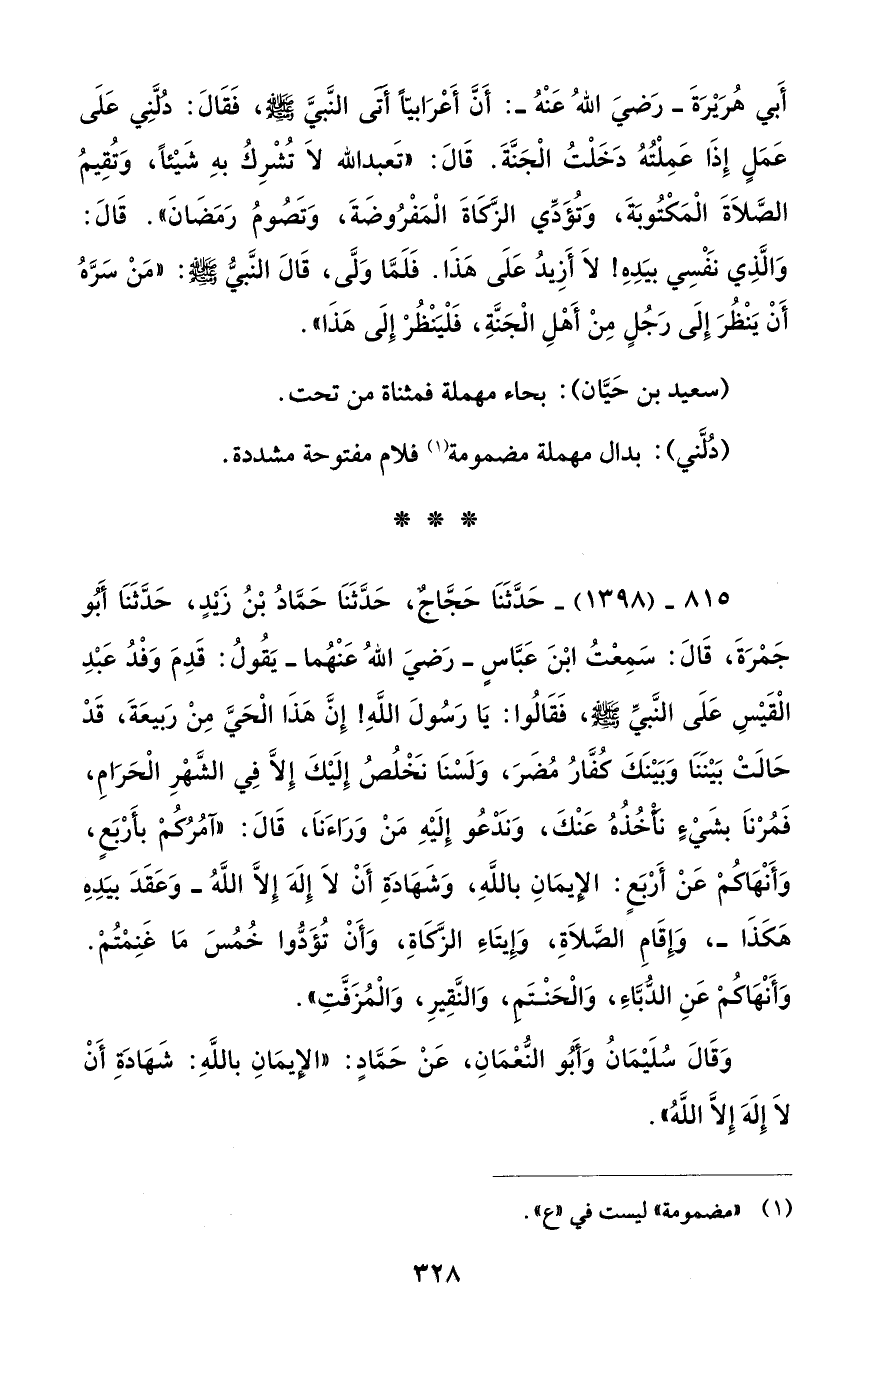 أَبي هُرَيْرَةَ ـ رَضيَ اللهُ عَنْهُ ـ: أَنَّ أَعْرَابيّاً أَتَى النَّبيَّ ﷺ، فَقَالَ: دُلَّنِي عَلَى
عَمَلٍ إِذَا عَمِلْتُهُ دَخَلْتُ الْجَنَّةَ. قَالَ: «تَعبدالله لاَ تُشْرِكُ بهِ شَيْئاً، وَتُقِيمُ
الصَّلاَةَ الْمَكْتُوبَةَ، وَتُؤَدِّي الزَّكَاةَ الْمَفْرُوضَةَ، وَتَصُومُ رَمَضَانَ». قَالَ:
وَالَّذِي نَفْسِي بيَدِهِ! لاَ أَزِيدُ عَلَى هَذَا. فَلَمَّا وَلَّى، قَالَ النَّبيُّ ﷺ: «مَنْ سَرَّهُ
أَنْ يَنْظُرَ إِلَى رَجُلٍ مِنْ أَهْلِ الْجَنَّةِ، فَلْيَنْظُرْ إِلَى هَذَا».
(سعيد بن حَيَّان): بحاء مهملة فمثناة من تحت.
(دُلَّني): بدال مهملة مضمومة(١) فلام مفتوحة مشددة.
* * *
٨١٥ ـ (١٣٩٨) ـ حَدَّثَنَا حَجَّاجٌ، حَدَّثَنَا حَمَّادُ بْنُ زَيْدٍ، حَدَّثَنَا أَبُو
جَمْرَةَ، قَالَ: سَمِعْتُ ابْنَ عَبَّاسٍ ـ رَضيَ اللهُ عَنْهُما ـ يَقُولُ: قَدِمَ وَفْدُ عَبْدِ
الْقَيْسِ عَلَى النَّبيِّ ﷺ، فَقَالُوا: يَا رَسُولَ اللَّهِ! إِنَّ هَذَا الْحَيَّ مِنْ رَبيعَةَ، قَدْ
حَالَتْ بَيْنَنَا وَبَيْنَكَ كُفَّارُ مُضَرَ، وَلَسْنَا نَخْلُصُ إِلَيْكَ إِلاَّ فِي الشَّهْرِ الْحَرَامِ،
فَمُرْنَا بشَيْءٍ نَأْخُذُهُ عَنْكَ، وَنَدْعُو إِلَيْهِ مَنْ وَرَاءَنَا، قَالَ: «آمُرُكُمْ بأَرْبَعٍ،
وَأَنْهَاكُمْ عَنْ أَرْبَعٍ: الإِيمَانِ باللَّهِ، وَشَهَادَةِ أَنْ لاَ إِلَهَ إِلاَّ اللَّهُ ـ وَعَقَدَ بيَدِهِ
هَكَذَا ـ، وَإِقَامِ الصَّلاَةِ، وَإِيتَاءِ الزَّكَاةِ، وَأَنْ تُؤَدُّوا خُمُسَ مَا غَنِمْتُمْ.
وَأَنْهَاكُمْ عَنِ الدُّبَّاءِ، وَالْحَنْتَمِ، وَالنَّقِيرِ، وَالْمُزَفَّتِ».
وَقَالَ سُلَيْمَانُ وَأَبُو النُّعْمَانِ، عَنْ حَمَّادٍ: «الإِيمَانِ باللَّهِ: شَهَادَةِ أَنْ
لاَ إِلَهَ إِلاَّ اللَّهُ».
(١) «مضمومة» ليست في «ع».
٣٢٨